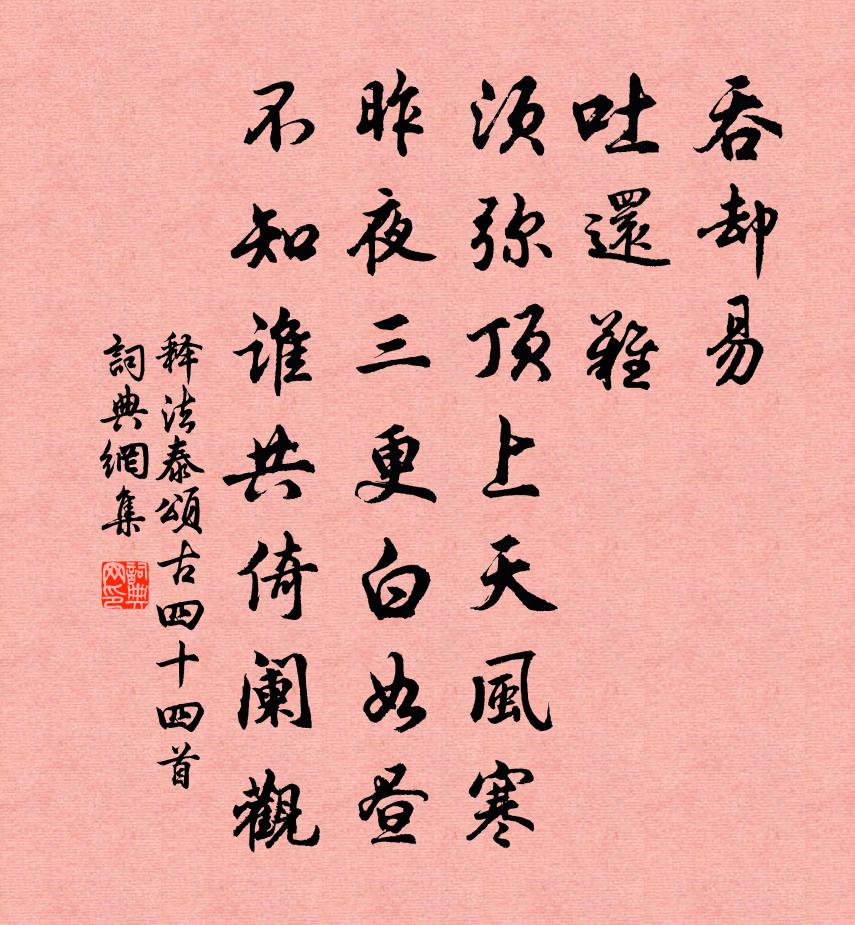 吞却易
吐還難
須弥頂上天風寒
昨夜三更白如昼
不知誰共倚闌觀
释法泰頌古四十四首
詞典網集
詞典
网印